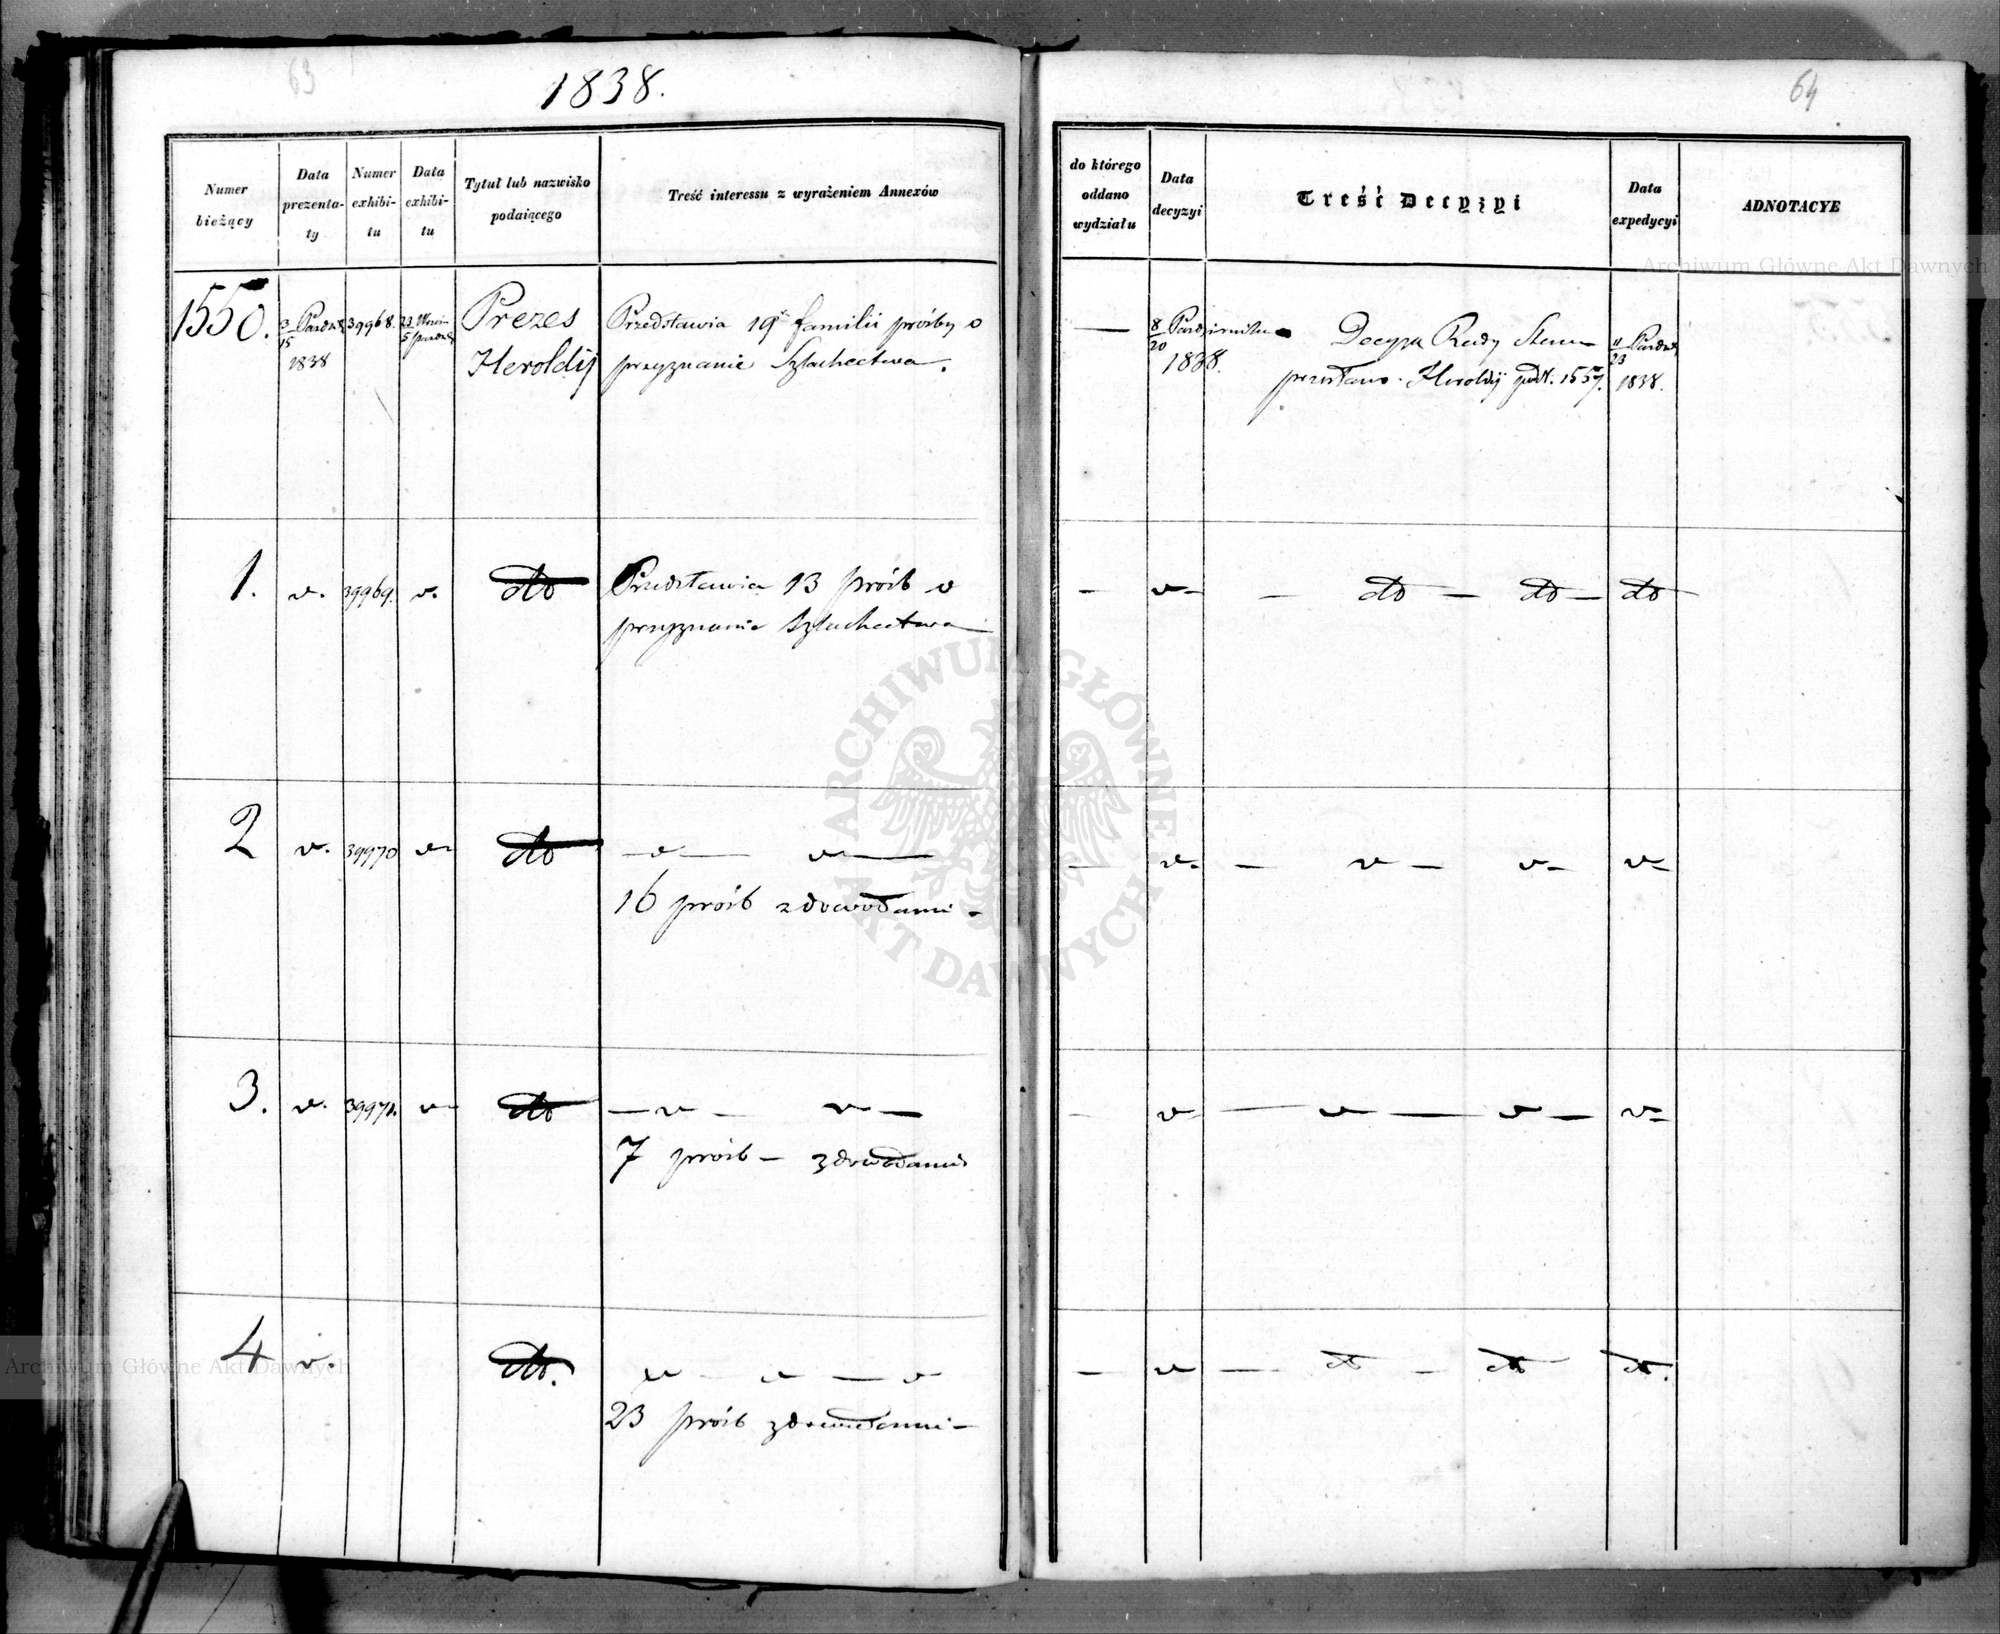 63
1838.
64
Numer bieżący
Data prezenta-ty
Numer exhibi-tu
Data exhibi-tu
Tytuł lub nazwisko podaiącego
Treść interessu z wyrażeniem Annexów
do którego oddano wydziału
Data decyzyi
Treść Decyzyi
Data expedycyi
ADNOTACYE
1550.
3/15
1838
39968.
Prezes
Heroldij
Przedstawia 19 familii próby o
przyznanie Szlachectwa.
—
8/20 Października
1838.
Decyzya Rady Stanu
przesłano Heroldij pod N. 1557.
11/23
1838.
1. v. 39969. v. dto
Przedstawia 13 prób o
przyznanie Szlachectwa
- v- — dto — dto — dto
2 v. 39970 v- dto — v — v —
16 prób z dowodami -
— v- — v — v- v-
3. v. 39971. v- dto — v — v —
7 prób — z dowodami
- v- — v — v — v-
4 v. dto. v — v — v
23 prób z dowodami —
— v — dto — dto dto.
ARCHIWUM GŁÓWNE AKT DAWNYCH
Archiwum Główne Akt Dawnych
Archiwum Główne Akt Dawnych